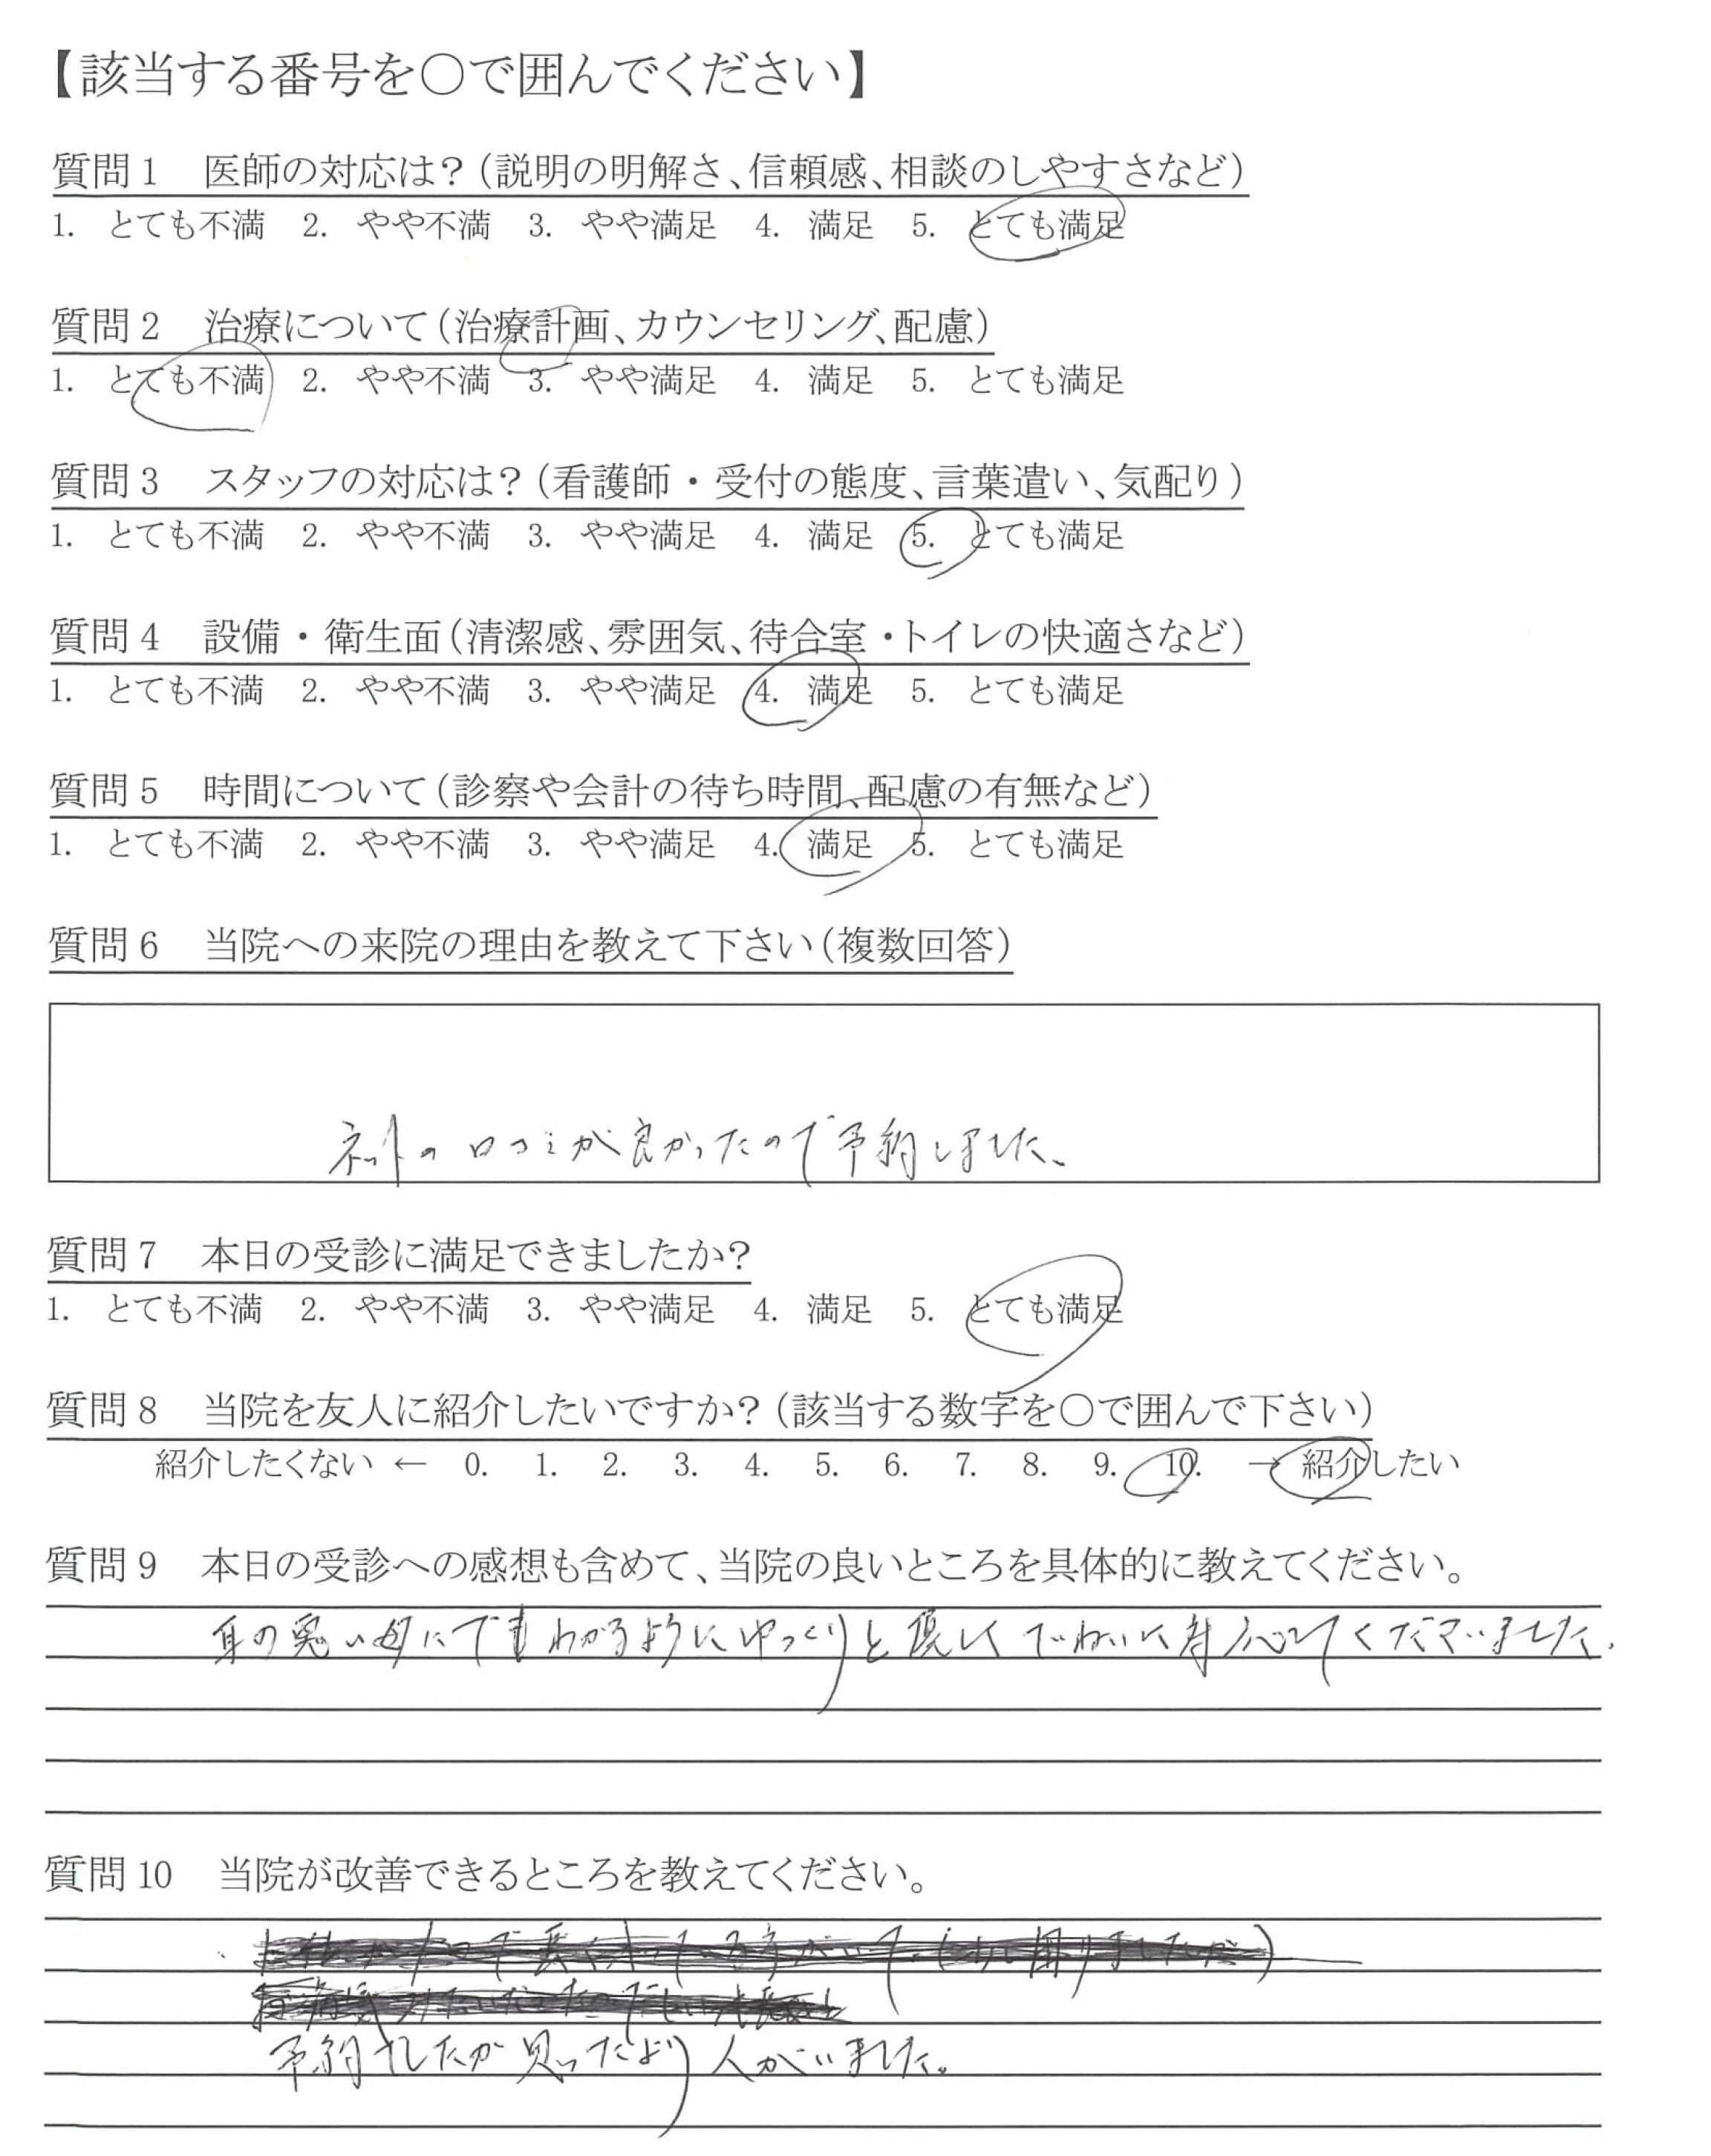 【該当する番号を○で囲んでください】
質問1　医師の対応は？（説明の明解さ、信頼感、相談のしやすさなど）
1. とても不満　2. やや不満　3. やや満足　4. 満足　5. とても満足
質問2　治療について（治療計画、カウンセリング、配慮）
1. とても不満　2. やや不満　3. やや満足　4. 満足　5. とても満足
質問3　スタッフの対応は？（看護師・受付の態度、言葉遣い、気配り）
1. とても不満　2. やや不満　3. やや満足　4. 満足　5. とても満足
質問4　設備・衛生面（清潔感、雰囲気、待合室・トイレの快適さなど）
1. とても不満　2. やや不満　3. やや満足　4. 満足　5. とても満足
質問5　時間について（診察や会計の待ち時間、配慮の有無など）
1. とても不満　2. やや不満　3. やや満足　4. 満足　5. とても満足
質問6　当院への来院の理由を教えて下さい（複数回答）
ネットの口コミが良かったので予約しました。
質問7　本日の受診に満足できましたか？
1. とても不満　2. やや不満　3. やや満足　4. 満足　5. とても満足
質問8　当院を友人に紹介したいですか？（該当する数字を○で囲んで下さい）
紹介したくない ← 0. 1. 2. 3. 4. 5. 6. 7. 8. 9. 10. → 紹介したい
質問9　本日の受診への感想も含めて、当院の良いところを具体的に教えてください。
耳の悪い母にでもわかるようにゆっくりと優しくていねいに対応してくださいました。
質問10　当院が改善できるところを教えてください。
予約したが思ったより人がいました。